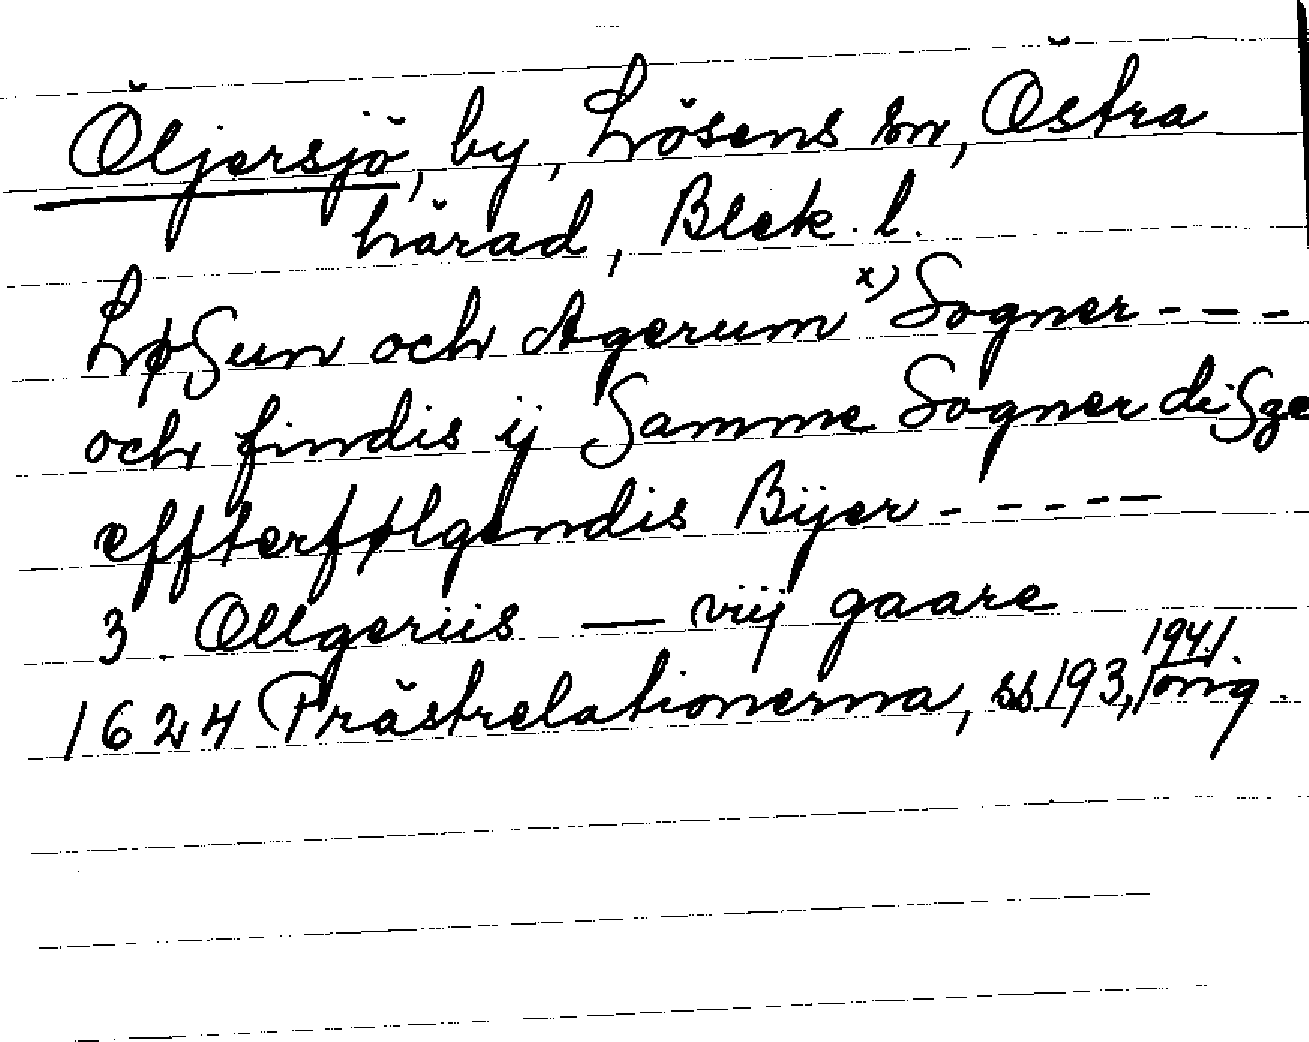 Öljersjö, by, Lösens sn, Östra
härad, Blek. l.
LøSun och Agerum x) Sogner - - -
och findis ij Samme Sogner diSze
effterfølgendis Bÿer - - - - -
3. Ollgeriis — vij gaare
1624 Prästrelationerna, ss 193, 194. orig.